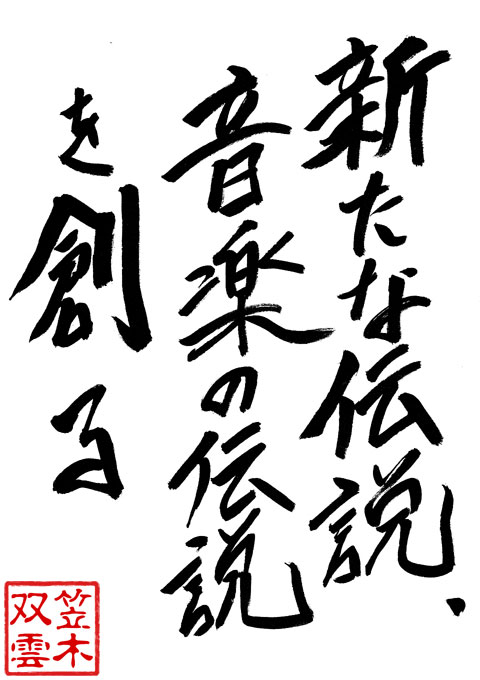 新たな伝説、
音楽の伝説
を創る
笠木
双雲